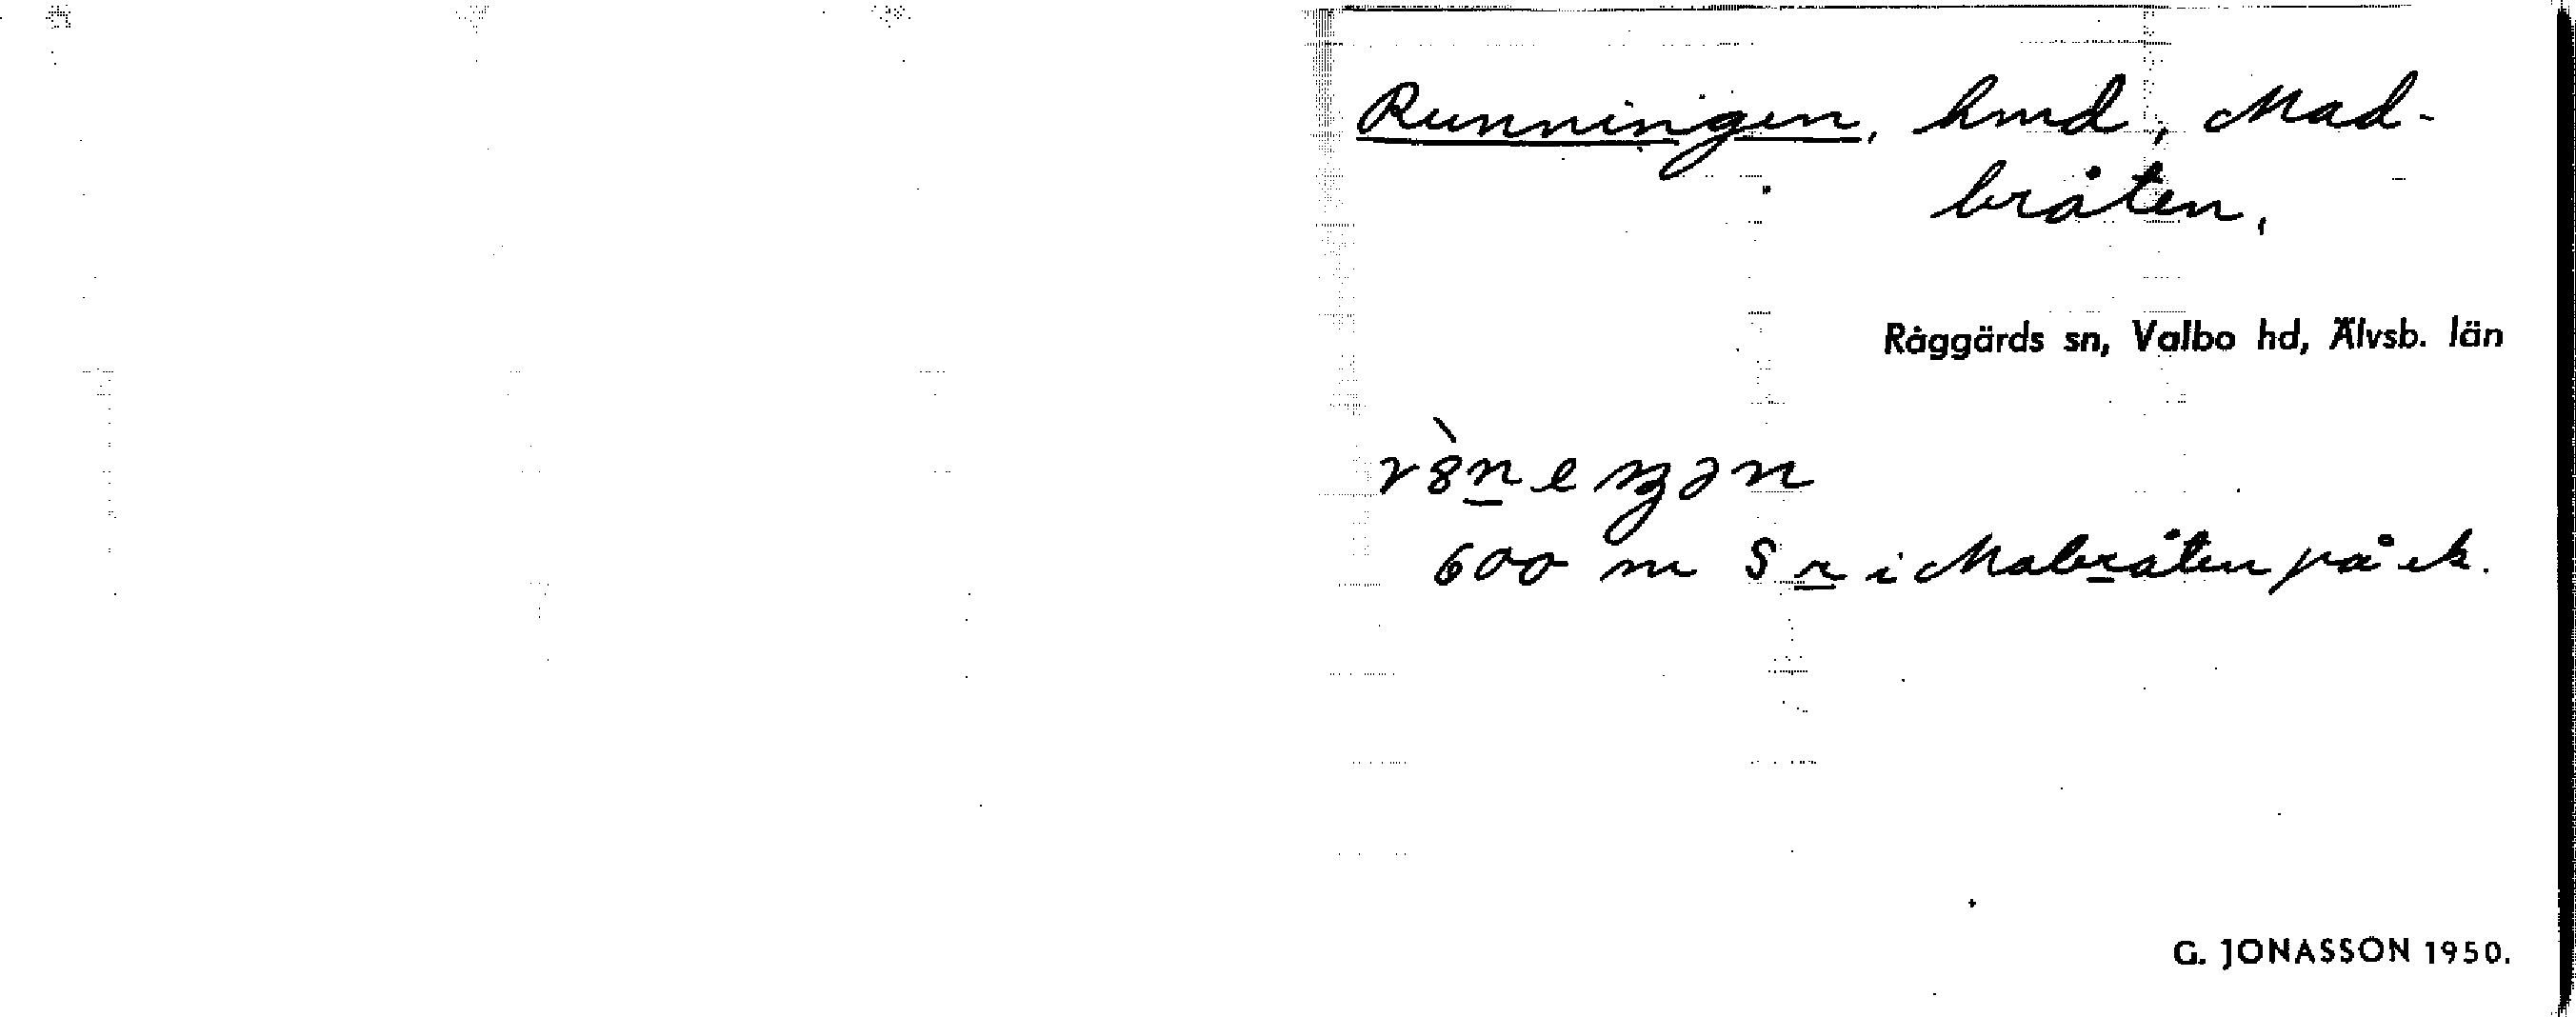 Runningen, hmd, Mad-
bråten,
Råggärds sn, Valbo hd, Älvsb. län
600 m S r i Mabråten på ek.
G. JONASSON 1950.